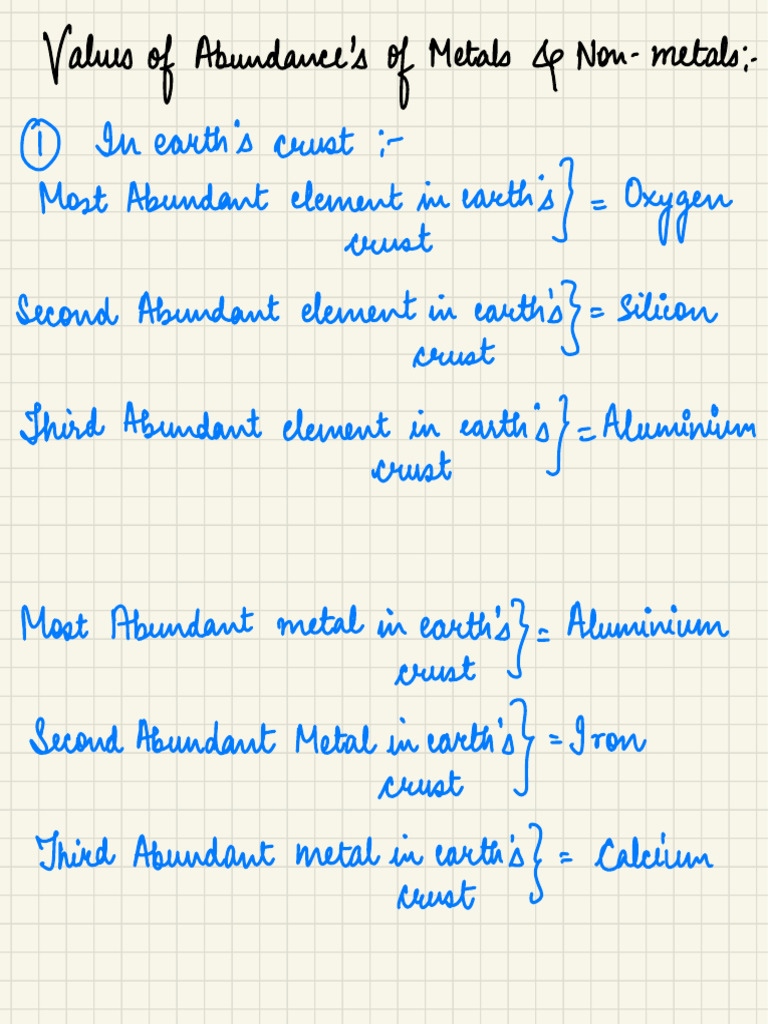 Values of Abundance's of Metals & Non-metals:-
① In earth's crust :-
Most Abundant element in earth's } = Oxygen
crust
Second Abundant element in earth's } = Silicon
crust
Third Abundant element in earth's } = Aluminium
crust
Most Abundant metal in earth's } = Aluminium
crust
Second Abundant Metal in earth's } = Iron
crust
Third Abundant metal in earth's } = Calcium
crust